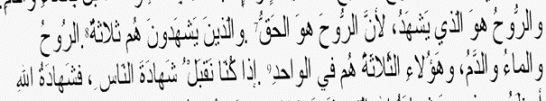 والرُّوحُ هوَ الّذي يَشهَدُ، لأنَّ الرُّوحَ هوَ الحَقُّ⁷. والّذينَ يَشهَدونَ هُم ثلاثةٌ⁸. الرُوحُ
والماءُ والدَّمُ، وهَؤُلاءِ الثَّلاثَةُ هُم في الواحدِ⁹. إذا كُنّا نَقبَلُ شَهادَةَ النّاسِ، فشَهادَةُ اللهِ